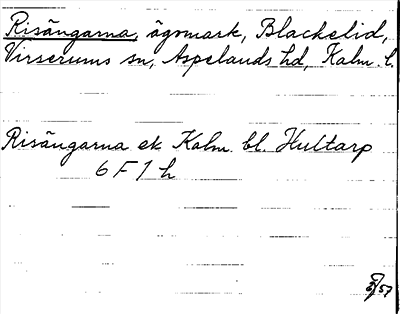 Risängarna, ägomark, Blackelid,
Virserums sn, Aspelands hd, Kalm. l.
Risängarna ek Kalm. bl. Hultarp
6 F 1 h
57